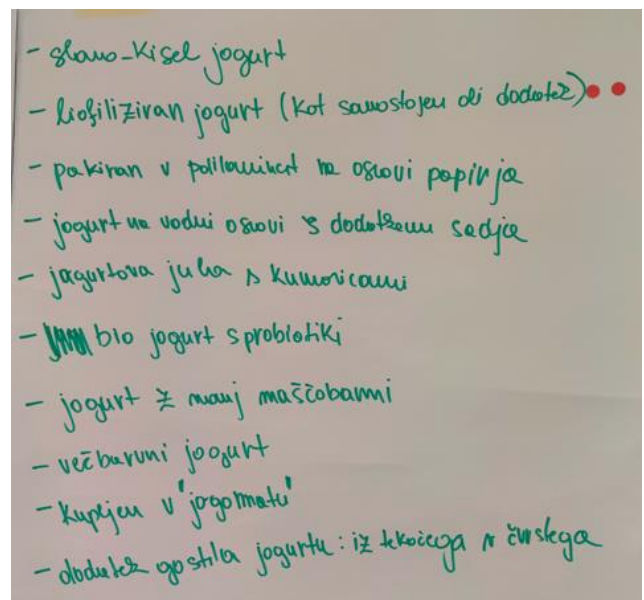 - slano-kisel jogurt
- liofiliziran jogurt (kot samostojen ali dodatek)
- pakiran v polilaminat na osnovi papirja
- jogurt na vodni osnovi s dodatkom sadja
- jogurtova juha s kumaricami
- bio jogurt s probiotiki
- jogurt z manj maščobami
- večbarvni jogurt
- kupljen v "jogomatu"
- dodatek gostila jogurtu: iz tekočega v čvrstega